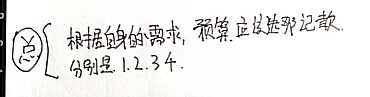 总 根据自身的需求,预算应该选那记款.
分别是 1.2.3.4.